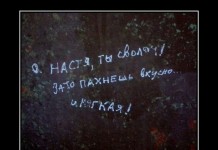 О. НАСТЯ, ТЫ СВОЛОЧЬ!
ЗАТО ПАХНЕШЬ ВКУСНО
И МЯГКАЯ!